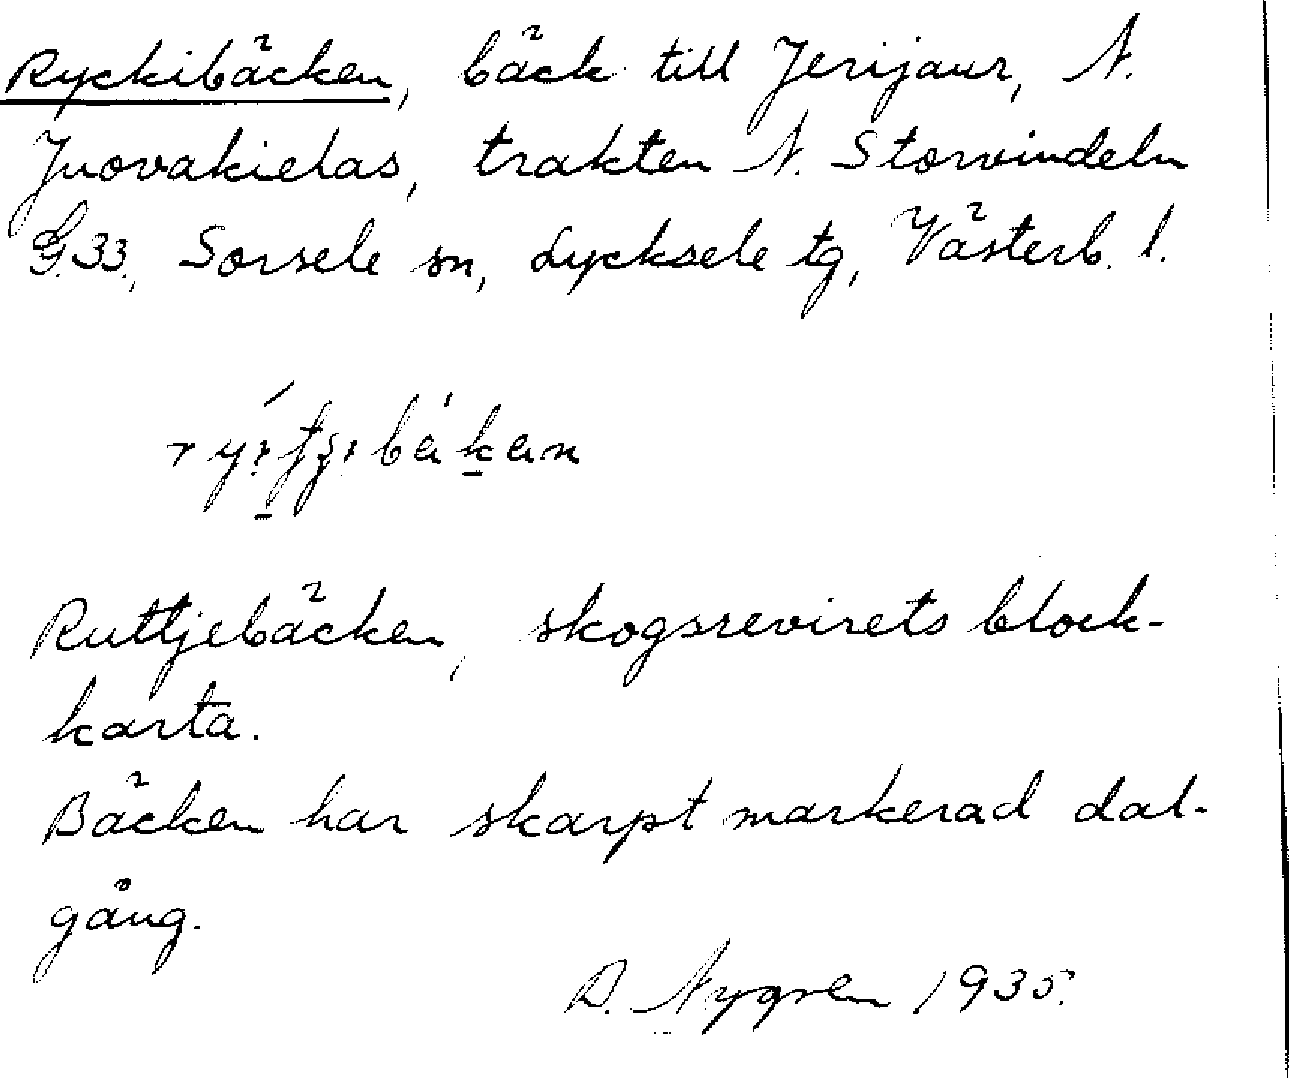 Ryckibäcken, bäck till Jerijaur, N.
Juovakielas, trakten N. Storvindeln
G.33, Sorsele sn, Lycksele tg, Västerb. l.
Ruttjebäcken, skogsrevirets block-
karta.
Bäcken har skarpt markerad dal-
gång.
Nygren 1935.